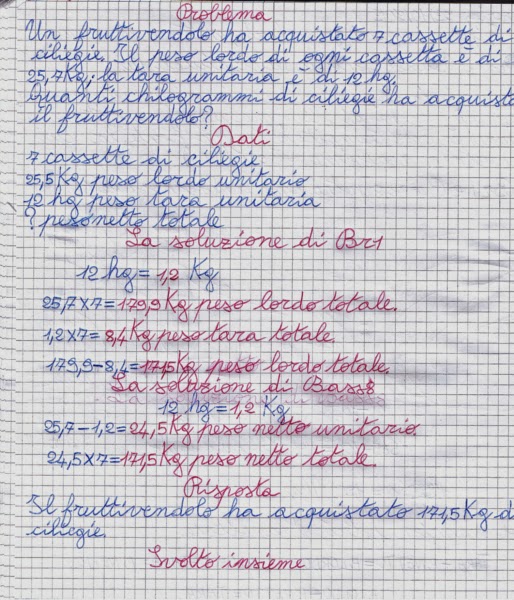 Problema
Un fruttivendolo ha acquistato 7 cassette di
ciliegie. Il peso lordo di ogni cassetta è di
25,7Kg; la tara unitaria è di 12 hg.
Quanti chilogrammi di ciliegie ha acquista
il fruttivendolo?
Dati
7 cassette di ciliegie
25,5Kg peso lordo unitario
12 hg peso tara unitaria
? peso netto totale
La soluzione di Br1
12 hg = 1,2 Kg
25,7×7=179,9Kg peso lordo totale.
1,2×7= 8,4Kg peso tara totale.
179,9-8,4=171,5Kg peso lordo totale.
La soluzione di Bass8
12 hg=1,2 Kg
25,7-1,2=24,5Kg peso netto unitario.
24,5×7=171,5Kg peso netto totale.
Risposta
Il fruttivendolo ha acquistato 171,5Kg d
ciliegie.
Svolto insieme